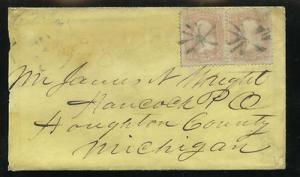 Mr James N Wright
Hancock P O
Houghton County
Michigan